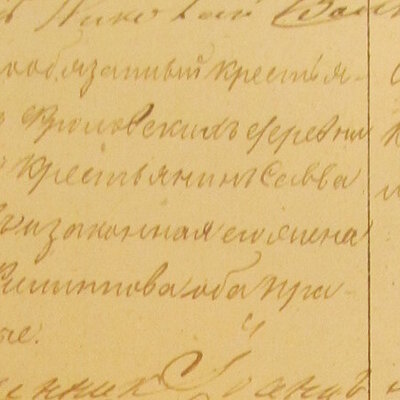 Николай
ообязатный крестья-
Фроловскихъ деревни
крестьянинъ Савва
и законная его жена
Филиппова оба пра-
ые.
Иванъ